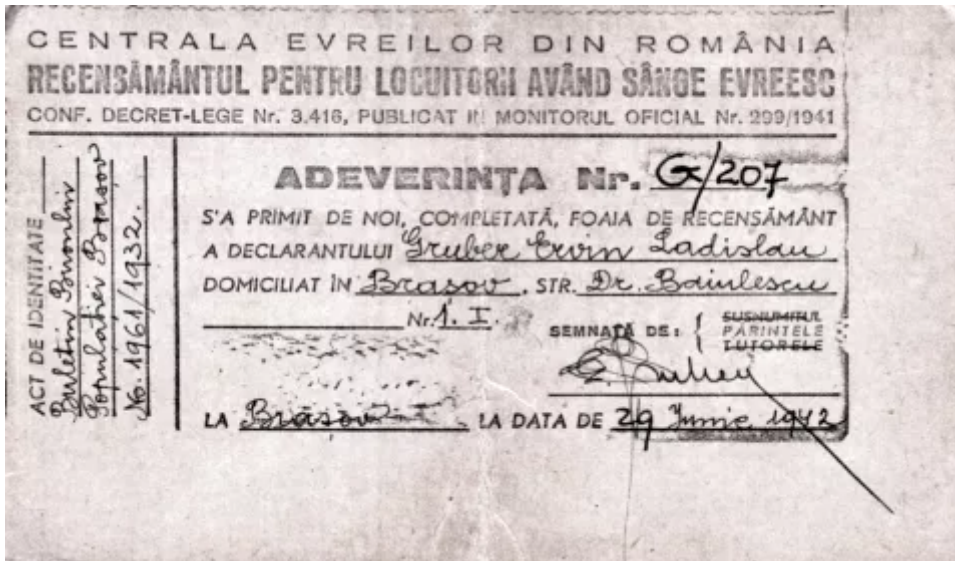 CENTRALA EVREILOR DIN ROMÂNIA
RECENSĂMÂNTUL PENTRU LOCUITORII AVÂND SÂNGE EVREESC
CONF. DECRET-LEGE Nr. 3.416, PUBLICAT IN MONITORUL OFICIAL Nr. 299/1941
ACT DE IDENTITATE
Buletin Biroului
Populatiei Brașov
No. 1961/1932.
ADEVERINȚA Nr. G/207
S'A PRIMIT DE NOI, COMPLETATĂ, FOAIA DE RECENSĂMÂNT
A DECLARANTULUI Gruber Ervin Ladislau
DOMICILIAT ÎN Brasov, STR. Dr. Baiulescu
Nr. 1. I.
SEMNATĂ DE: { SUSNUMITUL
PĂRINTELE
TUTORELE
LA Brasov LA DATA DE 29 Iunie 1942